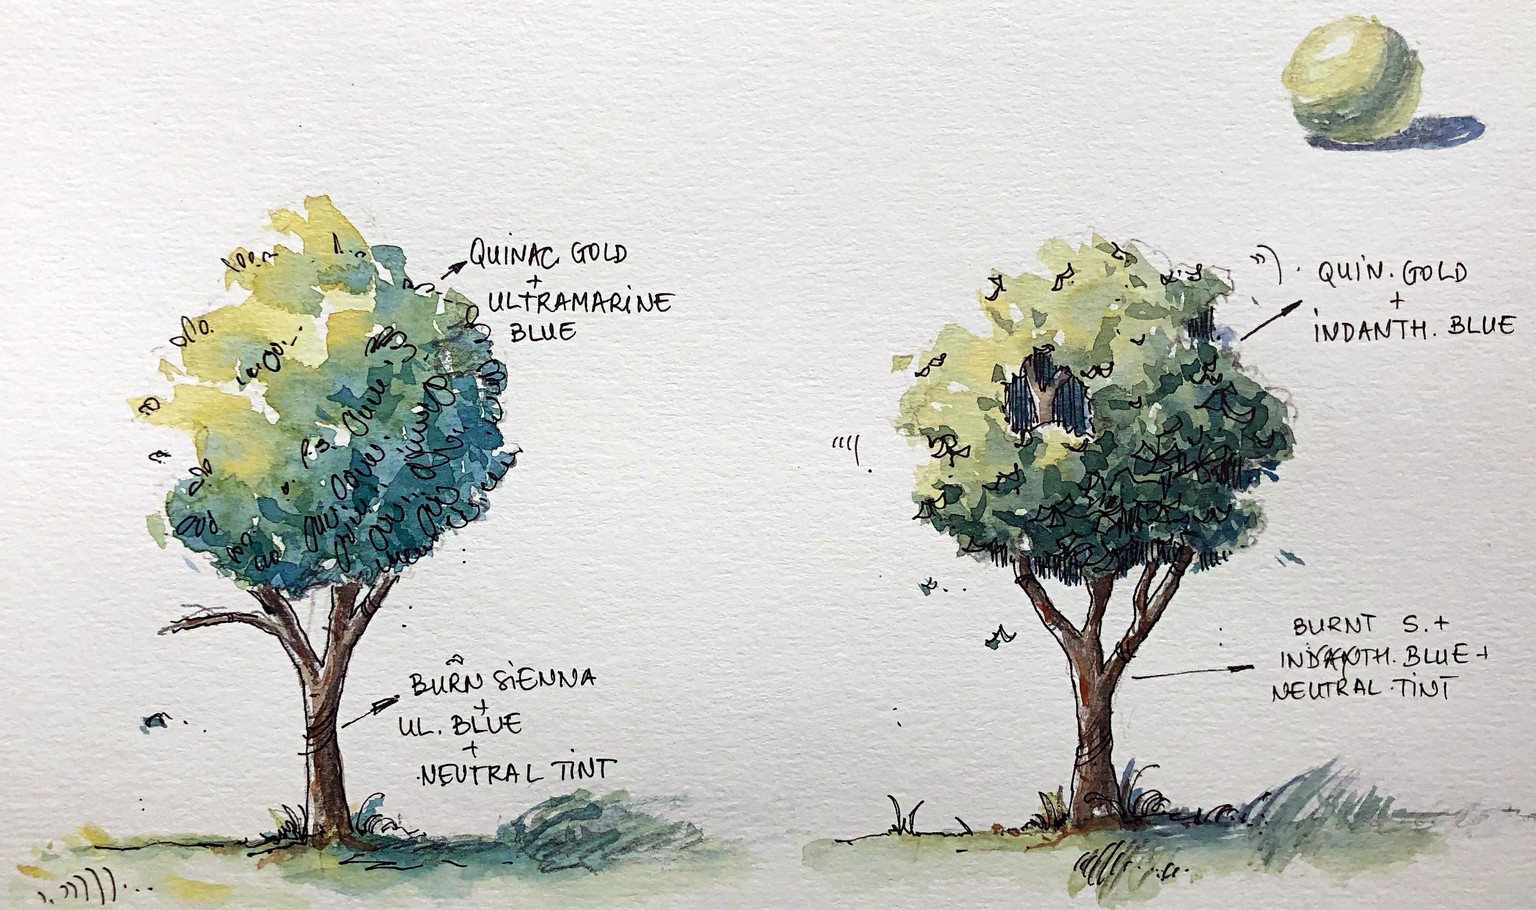 QUINAC GOLD
+
ULTRAMARINE
BLUE
BURN SIENNA
+
UL. BLUE
+
NEUTRAL TINT
QUIN. GOLD
+
INDANTH. BLUE
BURNT S. +
INDANTH. BLUE +
NEUTRAL TINT